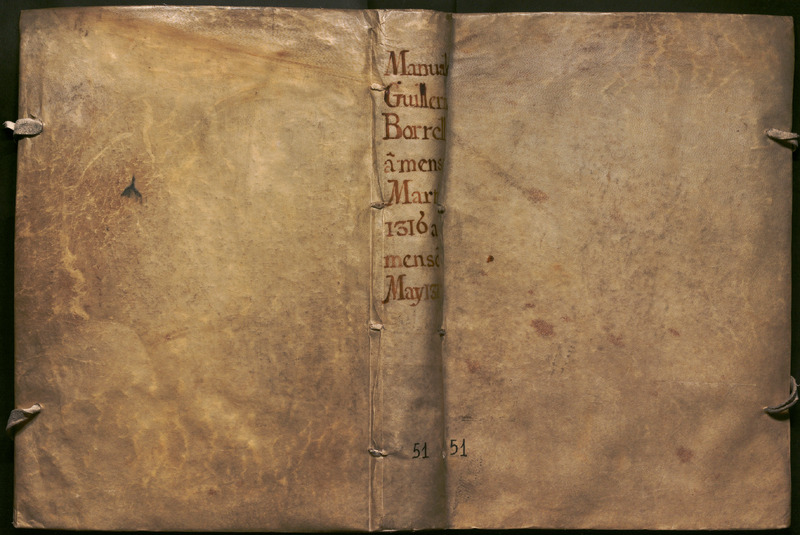 Manual
Guillem
Borrell
â mense
Mar
1316 a
mense
May 13
51 51